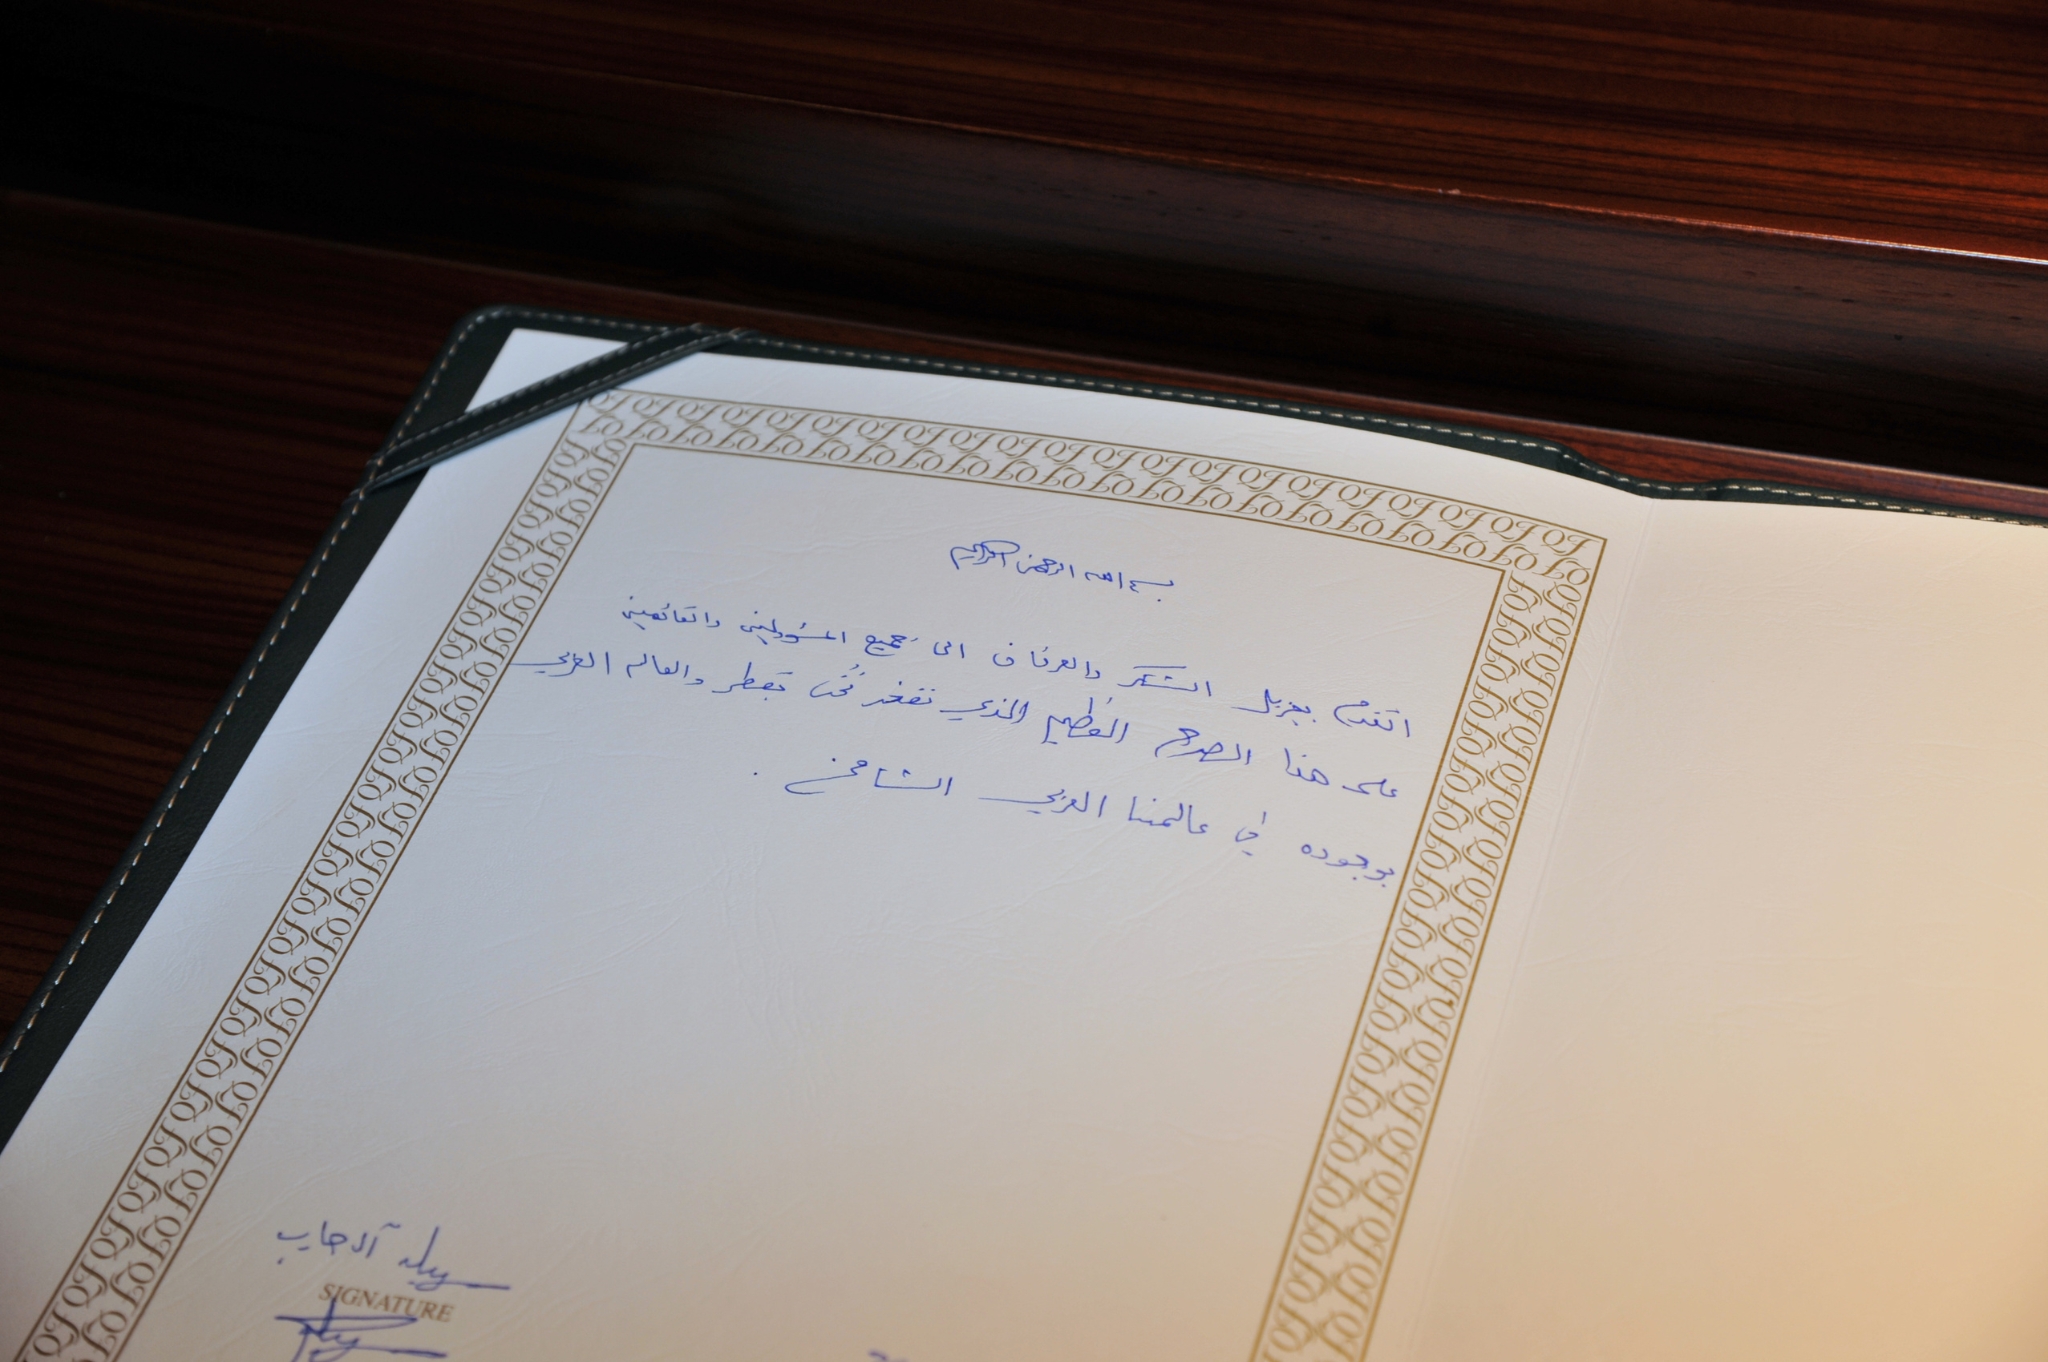 بسم الله الرحمن الرحيم
اتقدم بجزيل الشكر والعرفان الى جميع المسؤولين والقائمين
على هذا الصرح العظيم الذي نفخر نحن بقطر والعالم العربي
بوجوده في عالمنا العربي الشامخ .
آل حارب
SIGNATURE